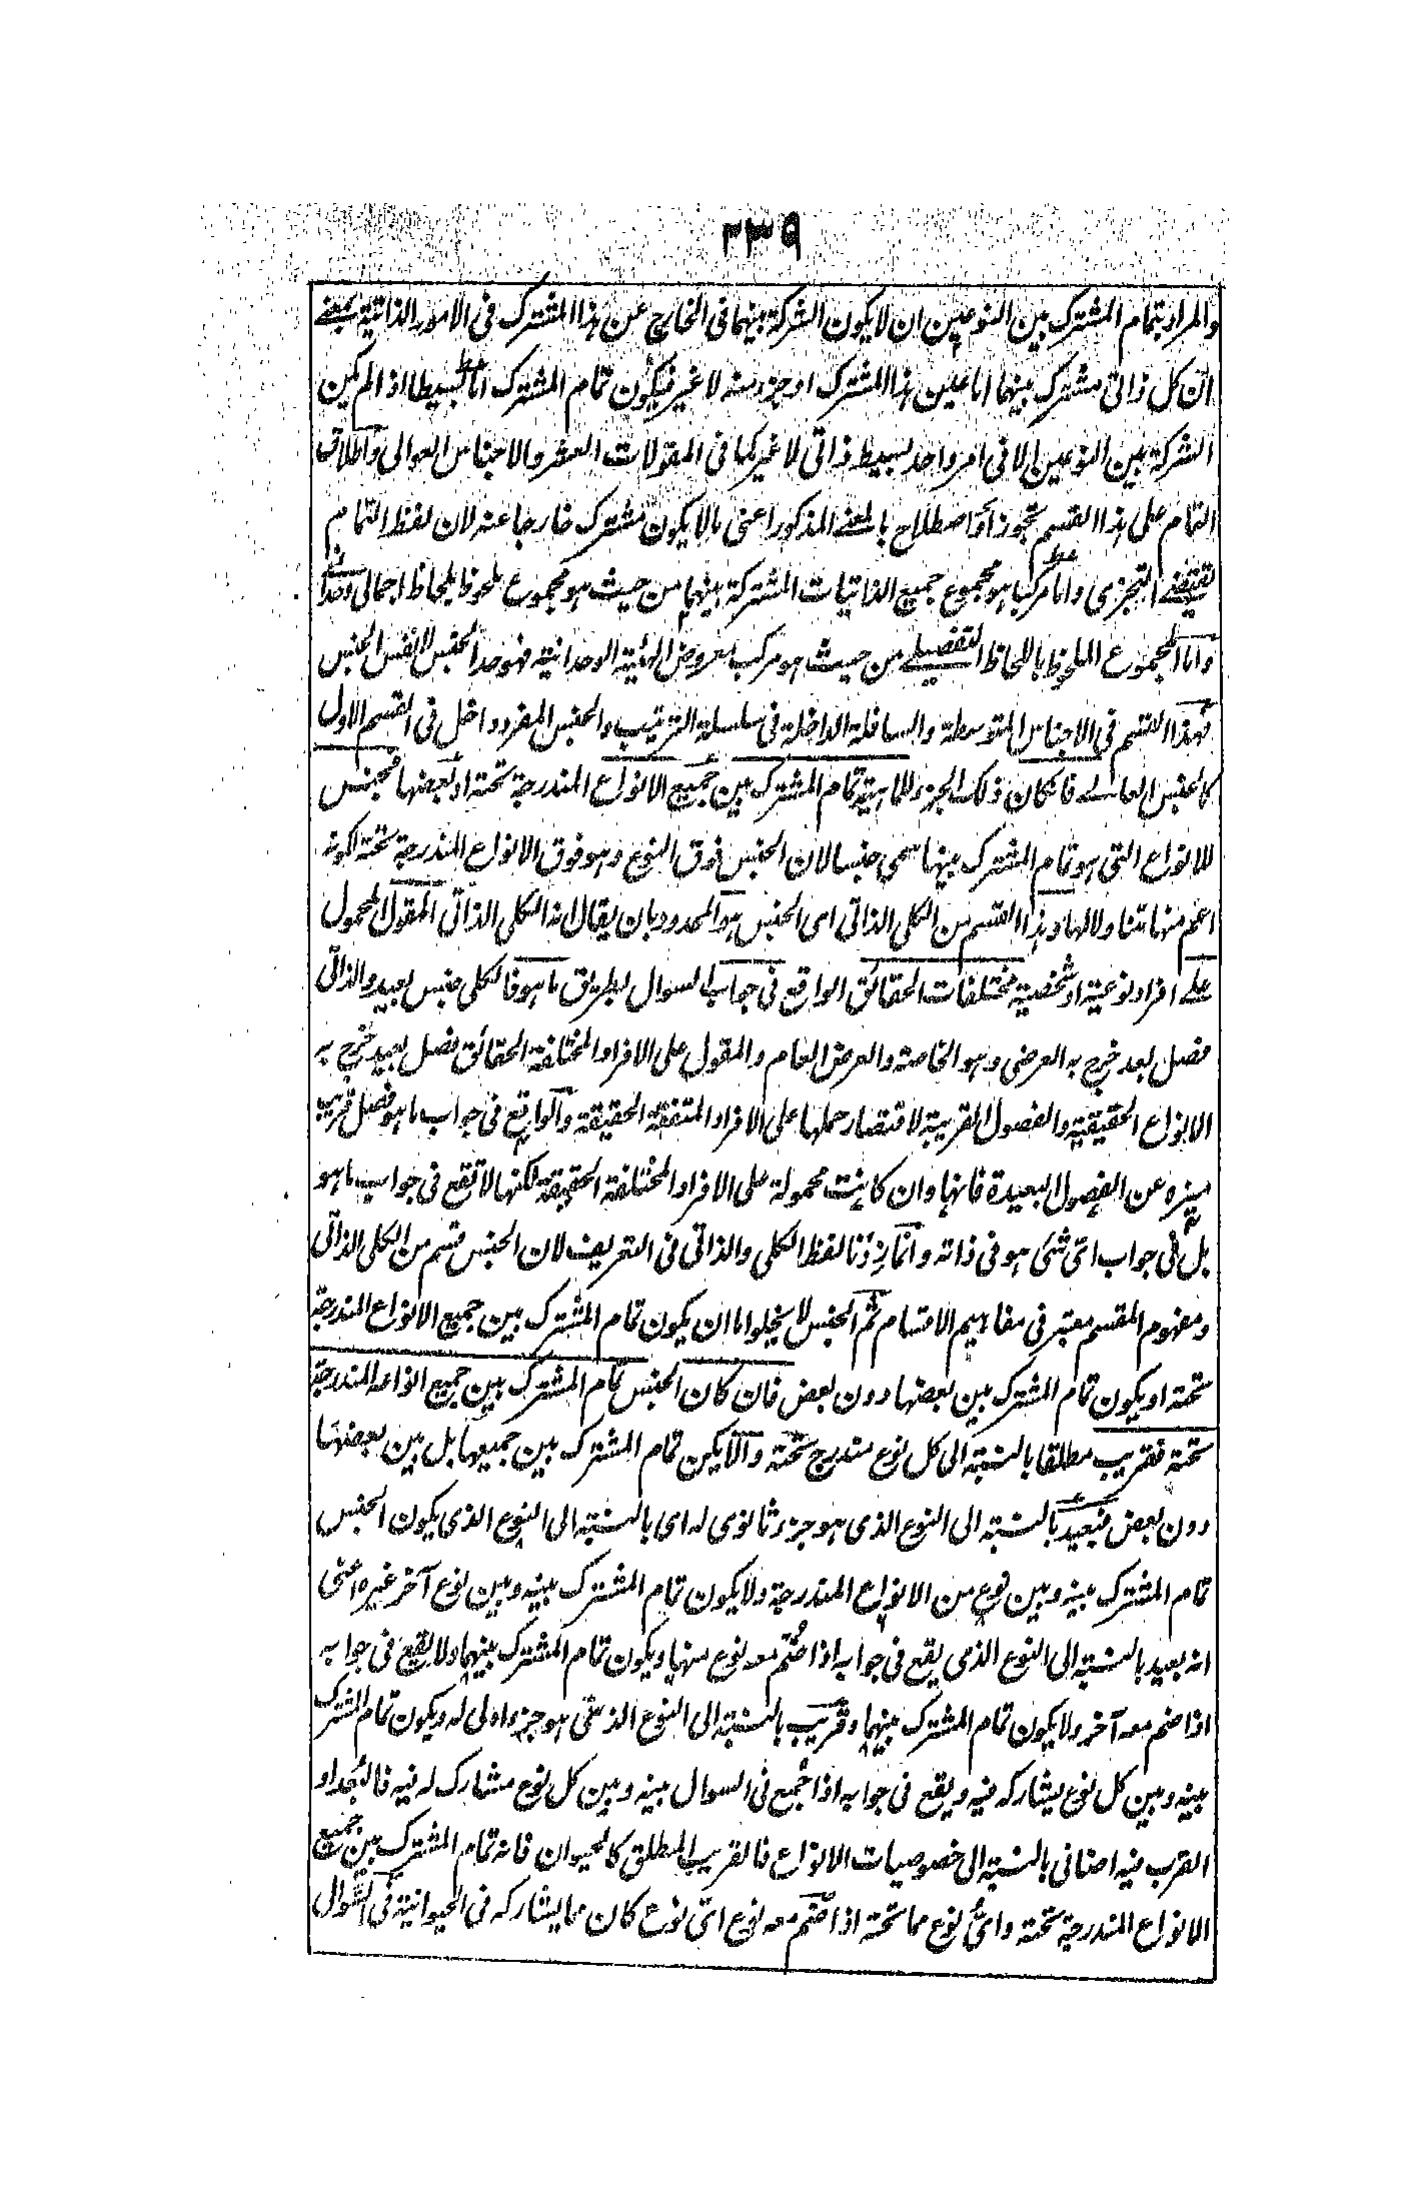 ٢٣٩
والمراد بتمام المشترك بين النوعين ان لا يكون الشركة بينهما فى الخارج عن هذا المشترك فى الامور الذاتية بمعنے
ان كل ذاتى مشترك بينهما اما عين هذا المشترك او جزء منه لا غير فيكون تمام المشترك اما بسيطا اذا لم يكن
الشركة بين النوعين الا فى امر واحد بسيط ذاتى لا غير كما فى المقولات العشر والاجناس العوالى واطلاق
التمام على هذا القسم تجوز او اصطلاح بالمعنے المذكور اعنى ما لا يكون مشترك خارجا عنه لان لفظ التمام
يقتضے التجزى واما مركبا هو مجموع جميع الذاتيات المشتركة بينهما من حيث هو مجموع ملحوظ بلحاظ اجمالى وحدانى
واما المجموع الملحوظ باللحاظ التفصيلے من حيث هو مركب معروض الهيئية الوحدانية فهو حد الجنس لا نفس الجنس
فهذا القسم فى الاجناس المتوسطة والسافلة الداخلة فى سلسلة الترتيب والجنس المفرد داخل فى القسم الاول
كالجنس العالے فانكان ذلك الجزء للماهية تمام المشترك بين جميع الانواع المندرجة تحته او بعضها فجنس
للانواع التى هو تمام المشترك بينها سمى جنسا لان الجنس فوق النوع وهو فوق الانواع المندرجة تحته لكونه
اعم منها متناولا لها وهذا القسم من الكلى الذاتى اى الجنس هو المحدود بان يقال انه الكلى الذاتى المقول المحمول
علے افراد نوعية او شخصية مختلفات الحقائق الواقع فى جواب السوال بطريق ما هو فالكلى جنس بعيد والذاتى
فصل بعد خرج به العرضى وهو الخاصة والعرض العام والمقول على الافراد المختلفة الحقائق فصل بعيد خرج به
الانواع الحقيقية والفصول القريبة لاقتصار حملها على الافراد المتفقة الحقيقة والواقع فى جواب ما هو فصل قريب
ميزه عن الفصول البعيدة فانها وان كانت محمولة على الافراد المختلفة الحقيقة لكنها لا تقع فى جواب ما هو
بل فى جواب اىّ شئ هو فى ذاته وانما زدنا لفظ الكلى والذاتى فى التعريف لان الجنس قسم من الكلى الذاتى
ومفهوم المقسم معتبر فى مفاهيم الاقسام ثم الجنس لا يخلوا ما ان يكون تمام المشترك بين جميع الانواع المندرجة
تحته او يكون تمام المشترك بين بعضها دون بعض فان كان الجنس تمام المشترك بين جميع انواعه المندرجة
تحته فقريب مطلقا بالنسبة الى كل نوع مندرج تحته والا يكن تمام المشترك بين جميعها بل بين بعضها
دون بعض فبعيد بالنسبة الى النوع الذى هو جزء ثانوى له اى بالنسبة الى النوع الذى يكون الجنس
تمام المشترك بينه وبين نوع من الانواع المندرجة ولا يكون تمام المشترك بينه وبين نوع آخر غيره اعنى
انه بعيد بالنسبة الى النوع الذى يقع فى جوابه اذا ضم معه نوع منها ويكون تمام المشترك بينهما ولا يقع فى جوابه
اذا ضم معه آخر ولا يكون تمام المشترك بينهما وقريب بالنسبة الى النوع الذى هو جزء اولى له ويكون تمام المشترك
بينه وبين كل نوع يشاركه فيه ويقع فى جوابه اذا جمع فى السوال بينه وبين كل نوع مشارك له فيه فالبعد او
القرب فيه اضافى بالنسبة الى خصوصيات الانواع فالقريب المطلق كالحيوان فانه تمام المشترك بين جميع
الانواع المندرجة تحته واىّ نوع مما تحته اذا ضم معه نوع اىّ نوع كان مما يشاركه فى الحيوانية فى السوال